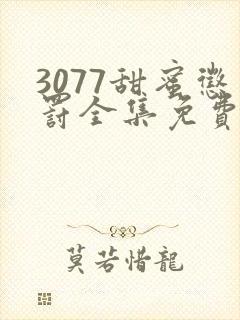 3077甜蜜懲
罰全集免費
莫若惜龍